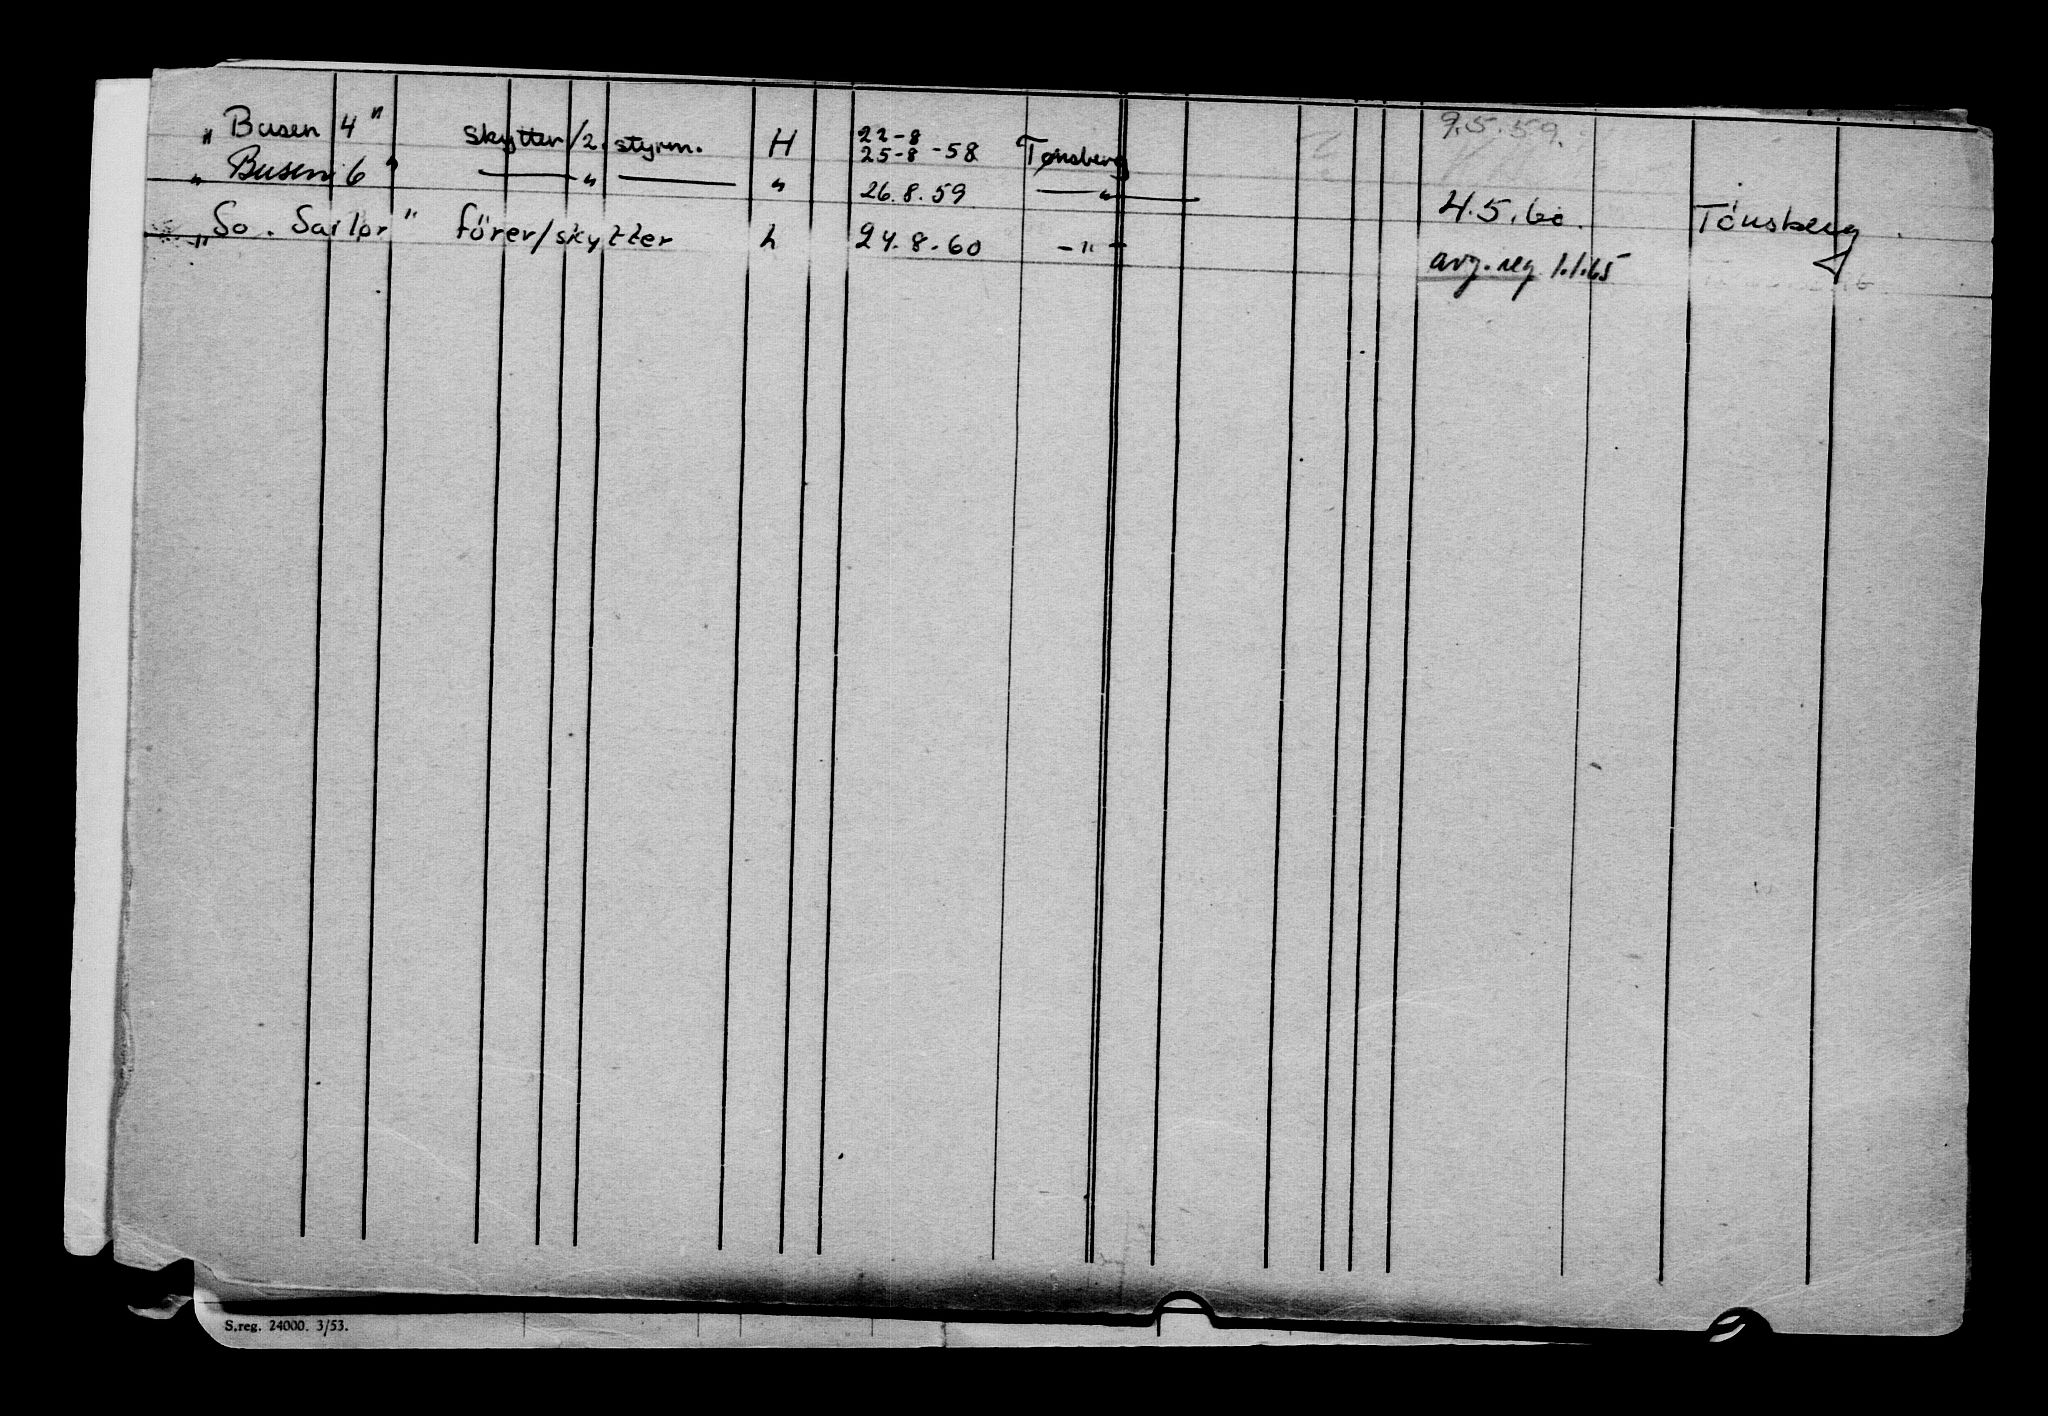 „Busen 4" skytter/2. styrm. H 22-8 25-8 -58 Tønsberg 9.5.59.
„Busen 6" —— „ —— „ 26.8.59 —— „ —— 4.5.60. Tönsberg.
„So. Sailor" förer/skytter h 24.8.60 -"- avg. reg 1.1.65
S.reg. 24000. 3/53.